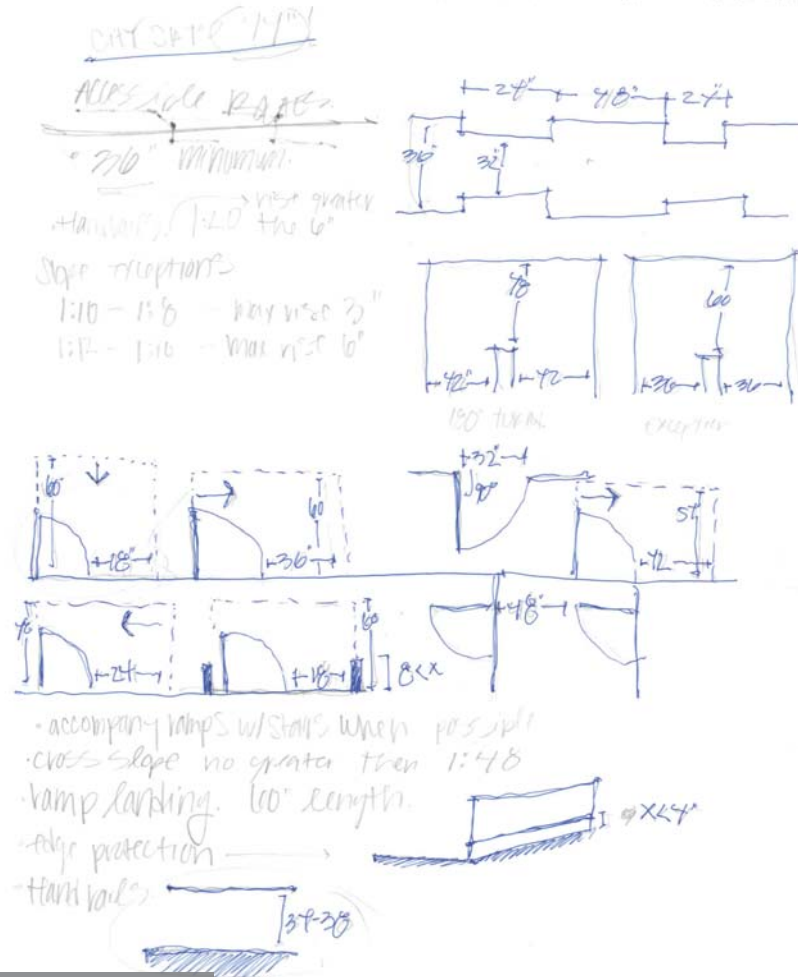 Accessible Routes
24" 48" 24"
• 36" minimum.
36" 32"
Handrails 1:20 rise greater
the 6"
Slope exceptions
1:10 - 1:8 - max rise 3"
1:12 - 1:10 - max rise 6"
48 60
42" 42 36 36
180° turns exception
60" 18" 60 36" 32" 90° 42
24" 60 18" 8<x 48"
• accompany ramps w/ stairs when possible
• cross slope no greater then 1:48
• ramp landing. 60" length.
• edge protection
x<4"
• Handrails
34-38